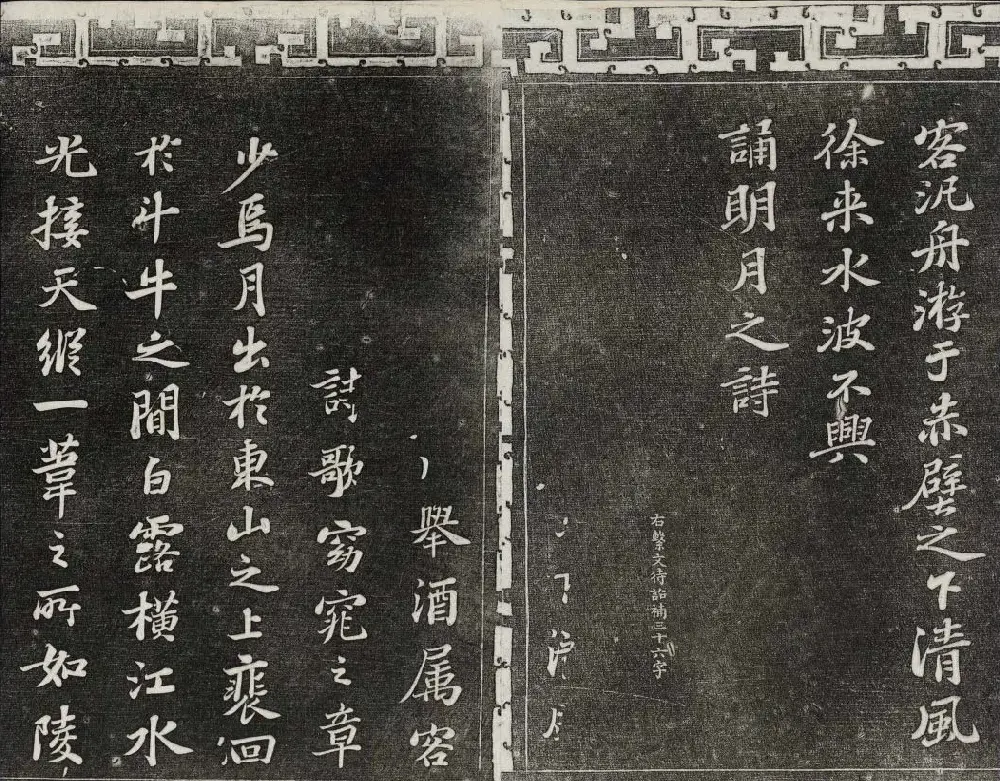 客泛舟游于赤壁之下清風
徐来水波不興
誦明月之詩
右繫文待詔補三十六字
舉酒属客
詩歌窈窕之章
少焉月出於東山之上裴佪
於斗牛之間白露橫江水
光接天縱一葦之所如陵